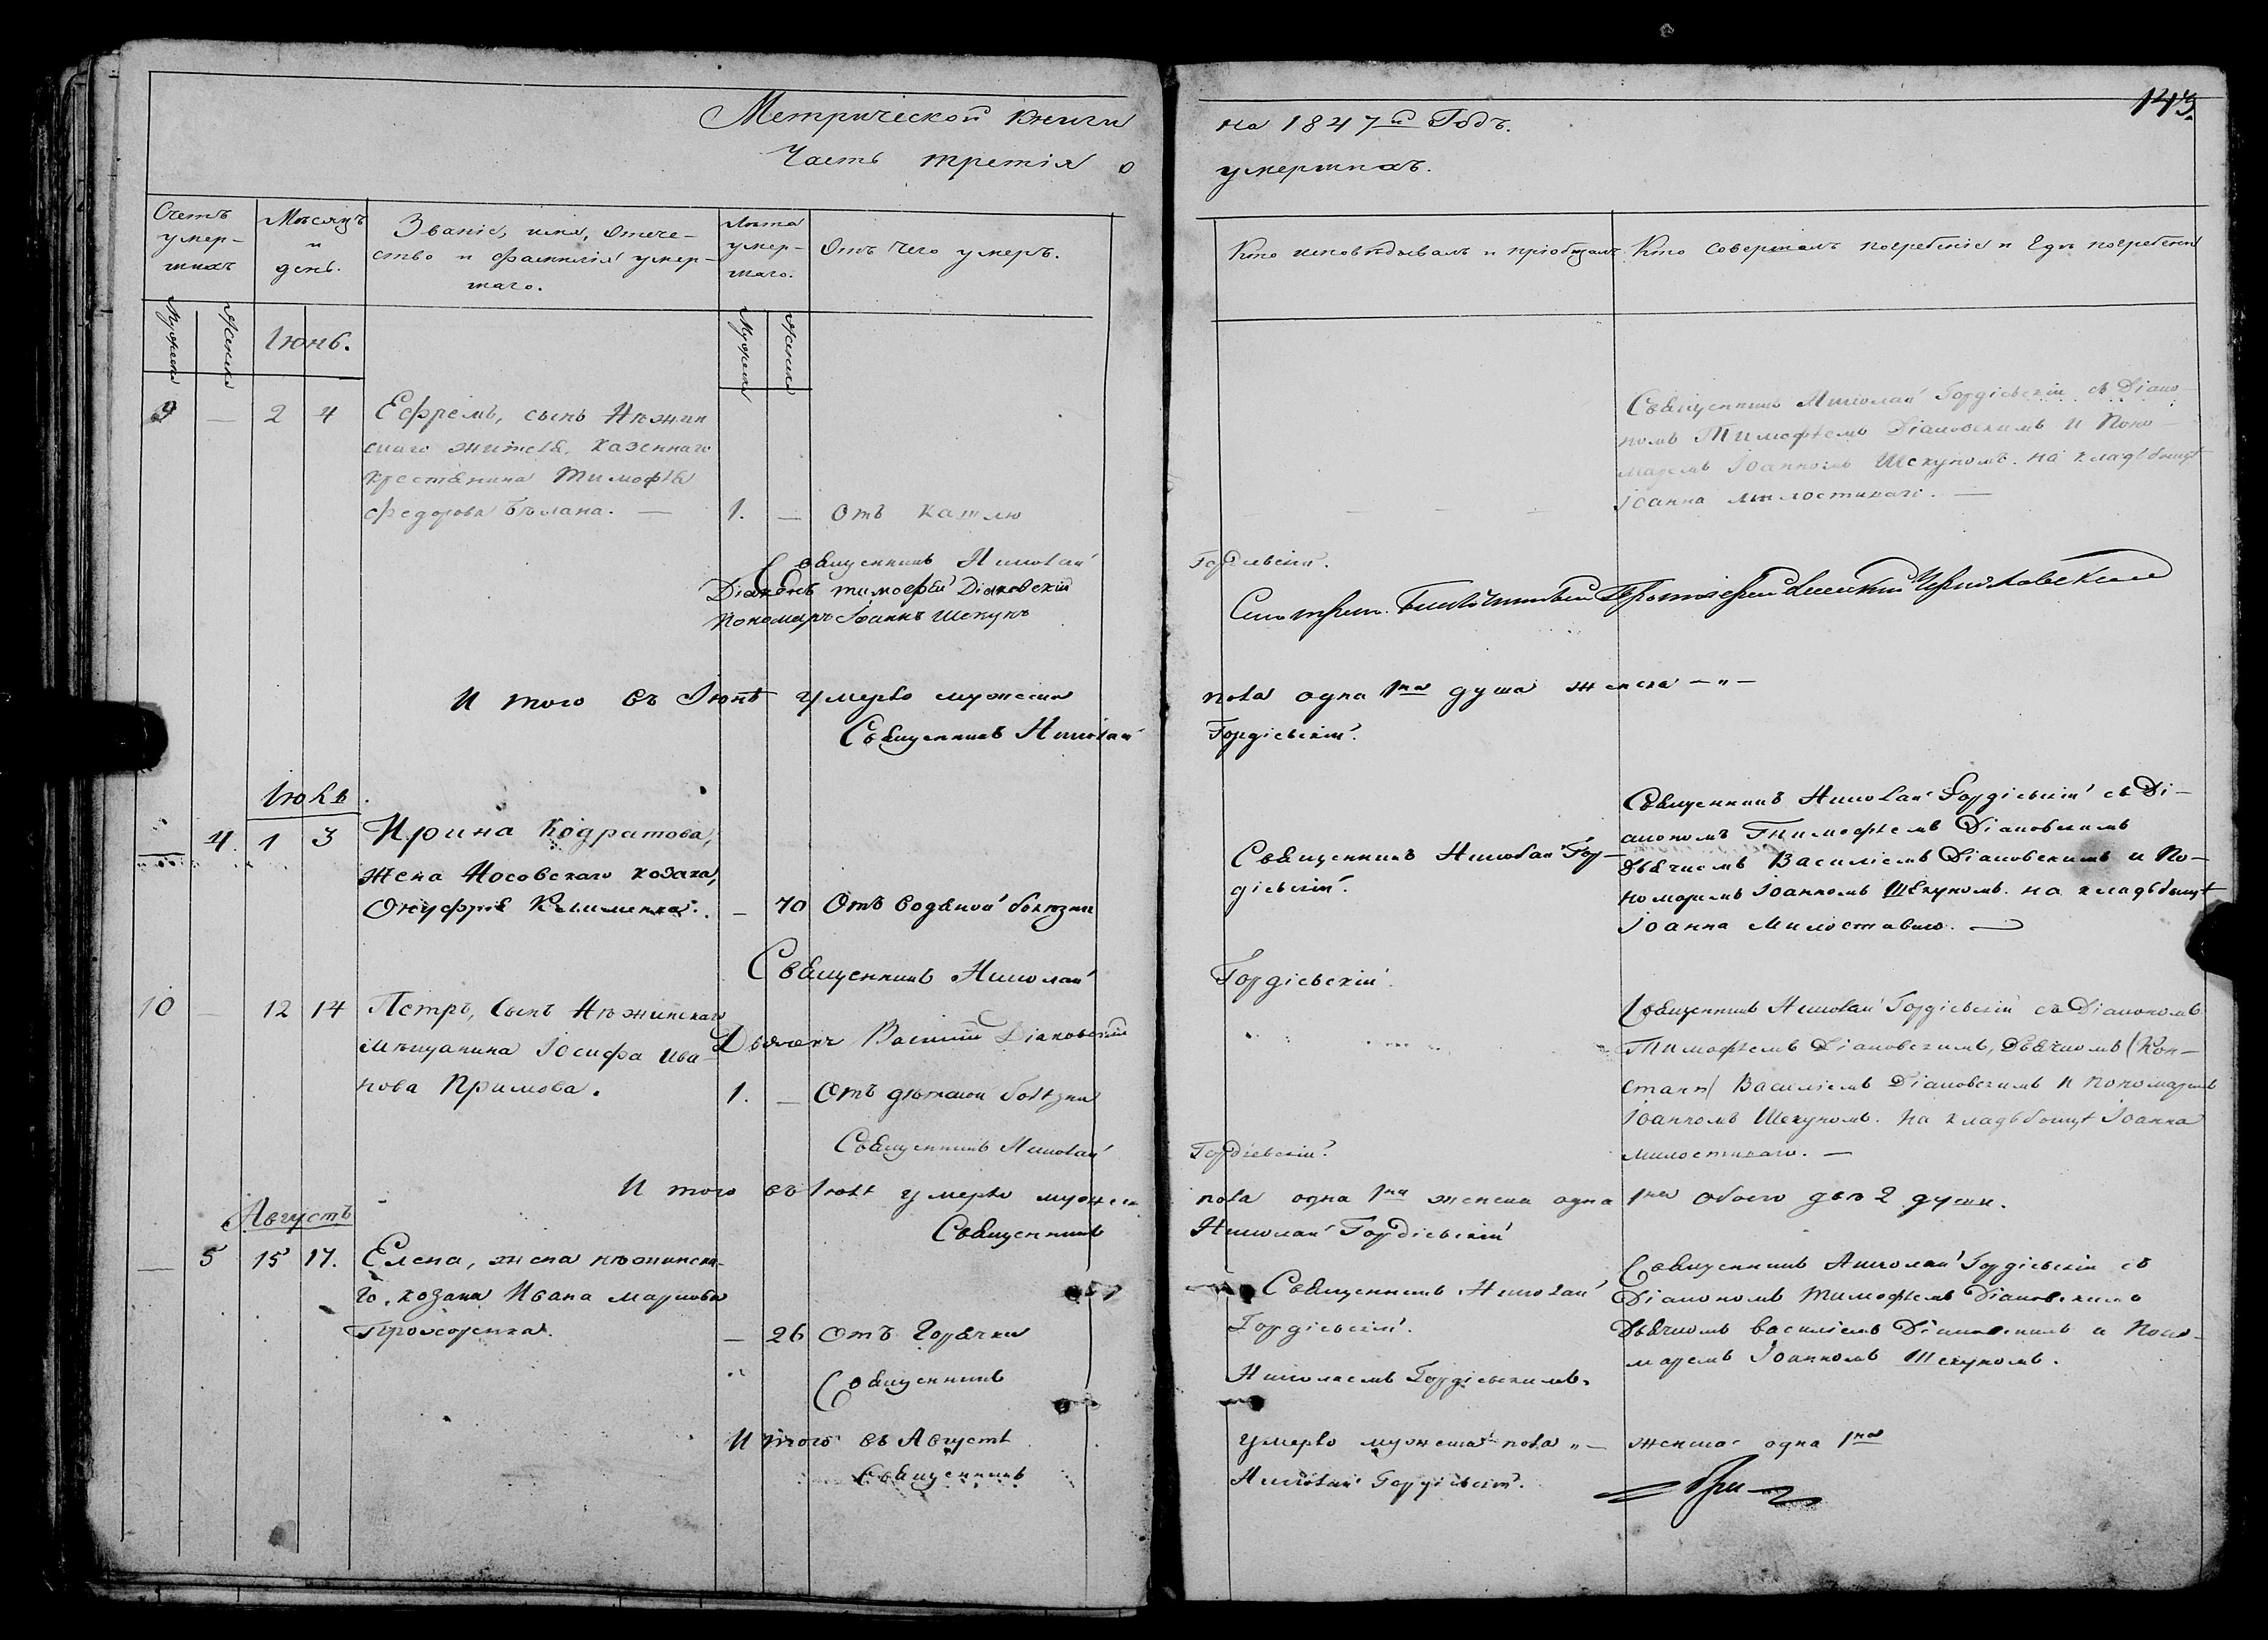 Метрической книги на 1847й Годъ.
Часть третія о умершихъ.
143
Счетъ умер-
шихъ
Мѣсяцъ
и
день.
Званіе, имя, отече-
ство и фамилія умер-
шаго.
Лѣта
умер-
шаго.
Отъ чего умеръ.
Кто исповѣдывалъ и пріобщалъ.
Кто совершалъ погребеніе и гдѣ погребены
Мужеска
Женска
Іюнь.
Мужеска
Женска
9 — 2 4
Ефремъ, сынъ Нѣжин
скаго жителя, казеннаго
крестянина Тимофѣя
Федорова Бѣлана. —
1. — Отъ кашлю
Священникъ Николай Гордіевскій съ Діако-
номъ Тимофѣемъ Діаковскимъ и Поно-
маремъ Іоанномъ Шекуномъ. на кладбищѣ
Іоанна милостиваго. —
Священникъ Николай Гордіевскій.
Діаконъ тимоѳей Діаковскій
Пономарь Іоаннъ Шекунъ
И того въ Іюнѣ умерло мужеска пола одна 1на душа женска — „ —
Священникъ Николай Гордіевскій.
Іюль.
— 4. 1 3
Ирина Кодратова,
жена Носовскаго козака,
Онуфрія Клименка.
— 70 Отъ водяной болѣзни
Священникъ Николай Гор-
діевскій.
Священникъ Николай Гордіевскій съ Ді-
акономъ Тимофѣемъ Діаковскимъ
Дьячкомъ Василіемъ Діаковскимъ и По-
номаремъ Іоанномъ Шекуномъ. на кладбищѣ
Іоанна Милостиваго. —
Священникъ Николай Гордіевскій.
10 — 12 14
Петръ, сынъ Нѣжинскаго
мѣщанина Іосифа Ива-
нова Примова.
1. — Отъ дѣтской болѣзни
Дьячокъ Василій Діаковскій
Священникъ Николай Гордіевскій съ Діакономъ
Тимофѣемъ Діаковскимъ, Дьячкомъ
Василіемъ Діаковскимъ и пономаремъ
Іоанномъ Шекуномъ. на кладбищѣ Іоанна
милостиваго. —
Священникъ Николай Гордіевскій.
И того въ Іюлѣ умерло мужеска пола одна 1на женска одна 1на обоего двѣ 2 души.
Священникъ Николай Гордіевскій
Августъ
— 5 15 17.
Елена, жена нѣжинска-
го, козака Ивана маркова
Прохоренка.
— 26 Отъ Горячки
Священникъ Николай
Гордіевскій.
Священникъ Николай Гордіевскій съ
Діакономъ Тимофѣемъ Діаковскимъ
Дьячкомъ василіемъ Діаковскимъ и Поно-
маремъ Іоанномъ Шекуномъ.
Священникъ Николаемъ Гордіевскимъ.
И того въ Августѣ умерло мужеска пола „ — женска одна 1на
Священникъ Николай Гордіевскій.